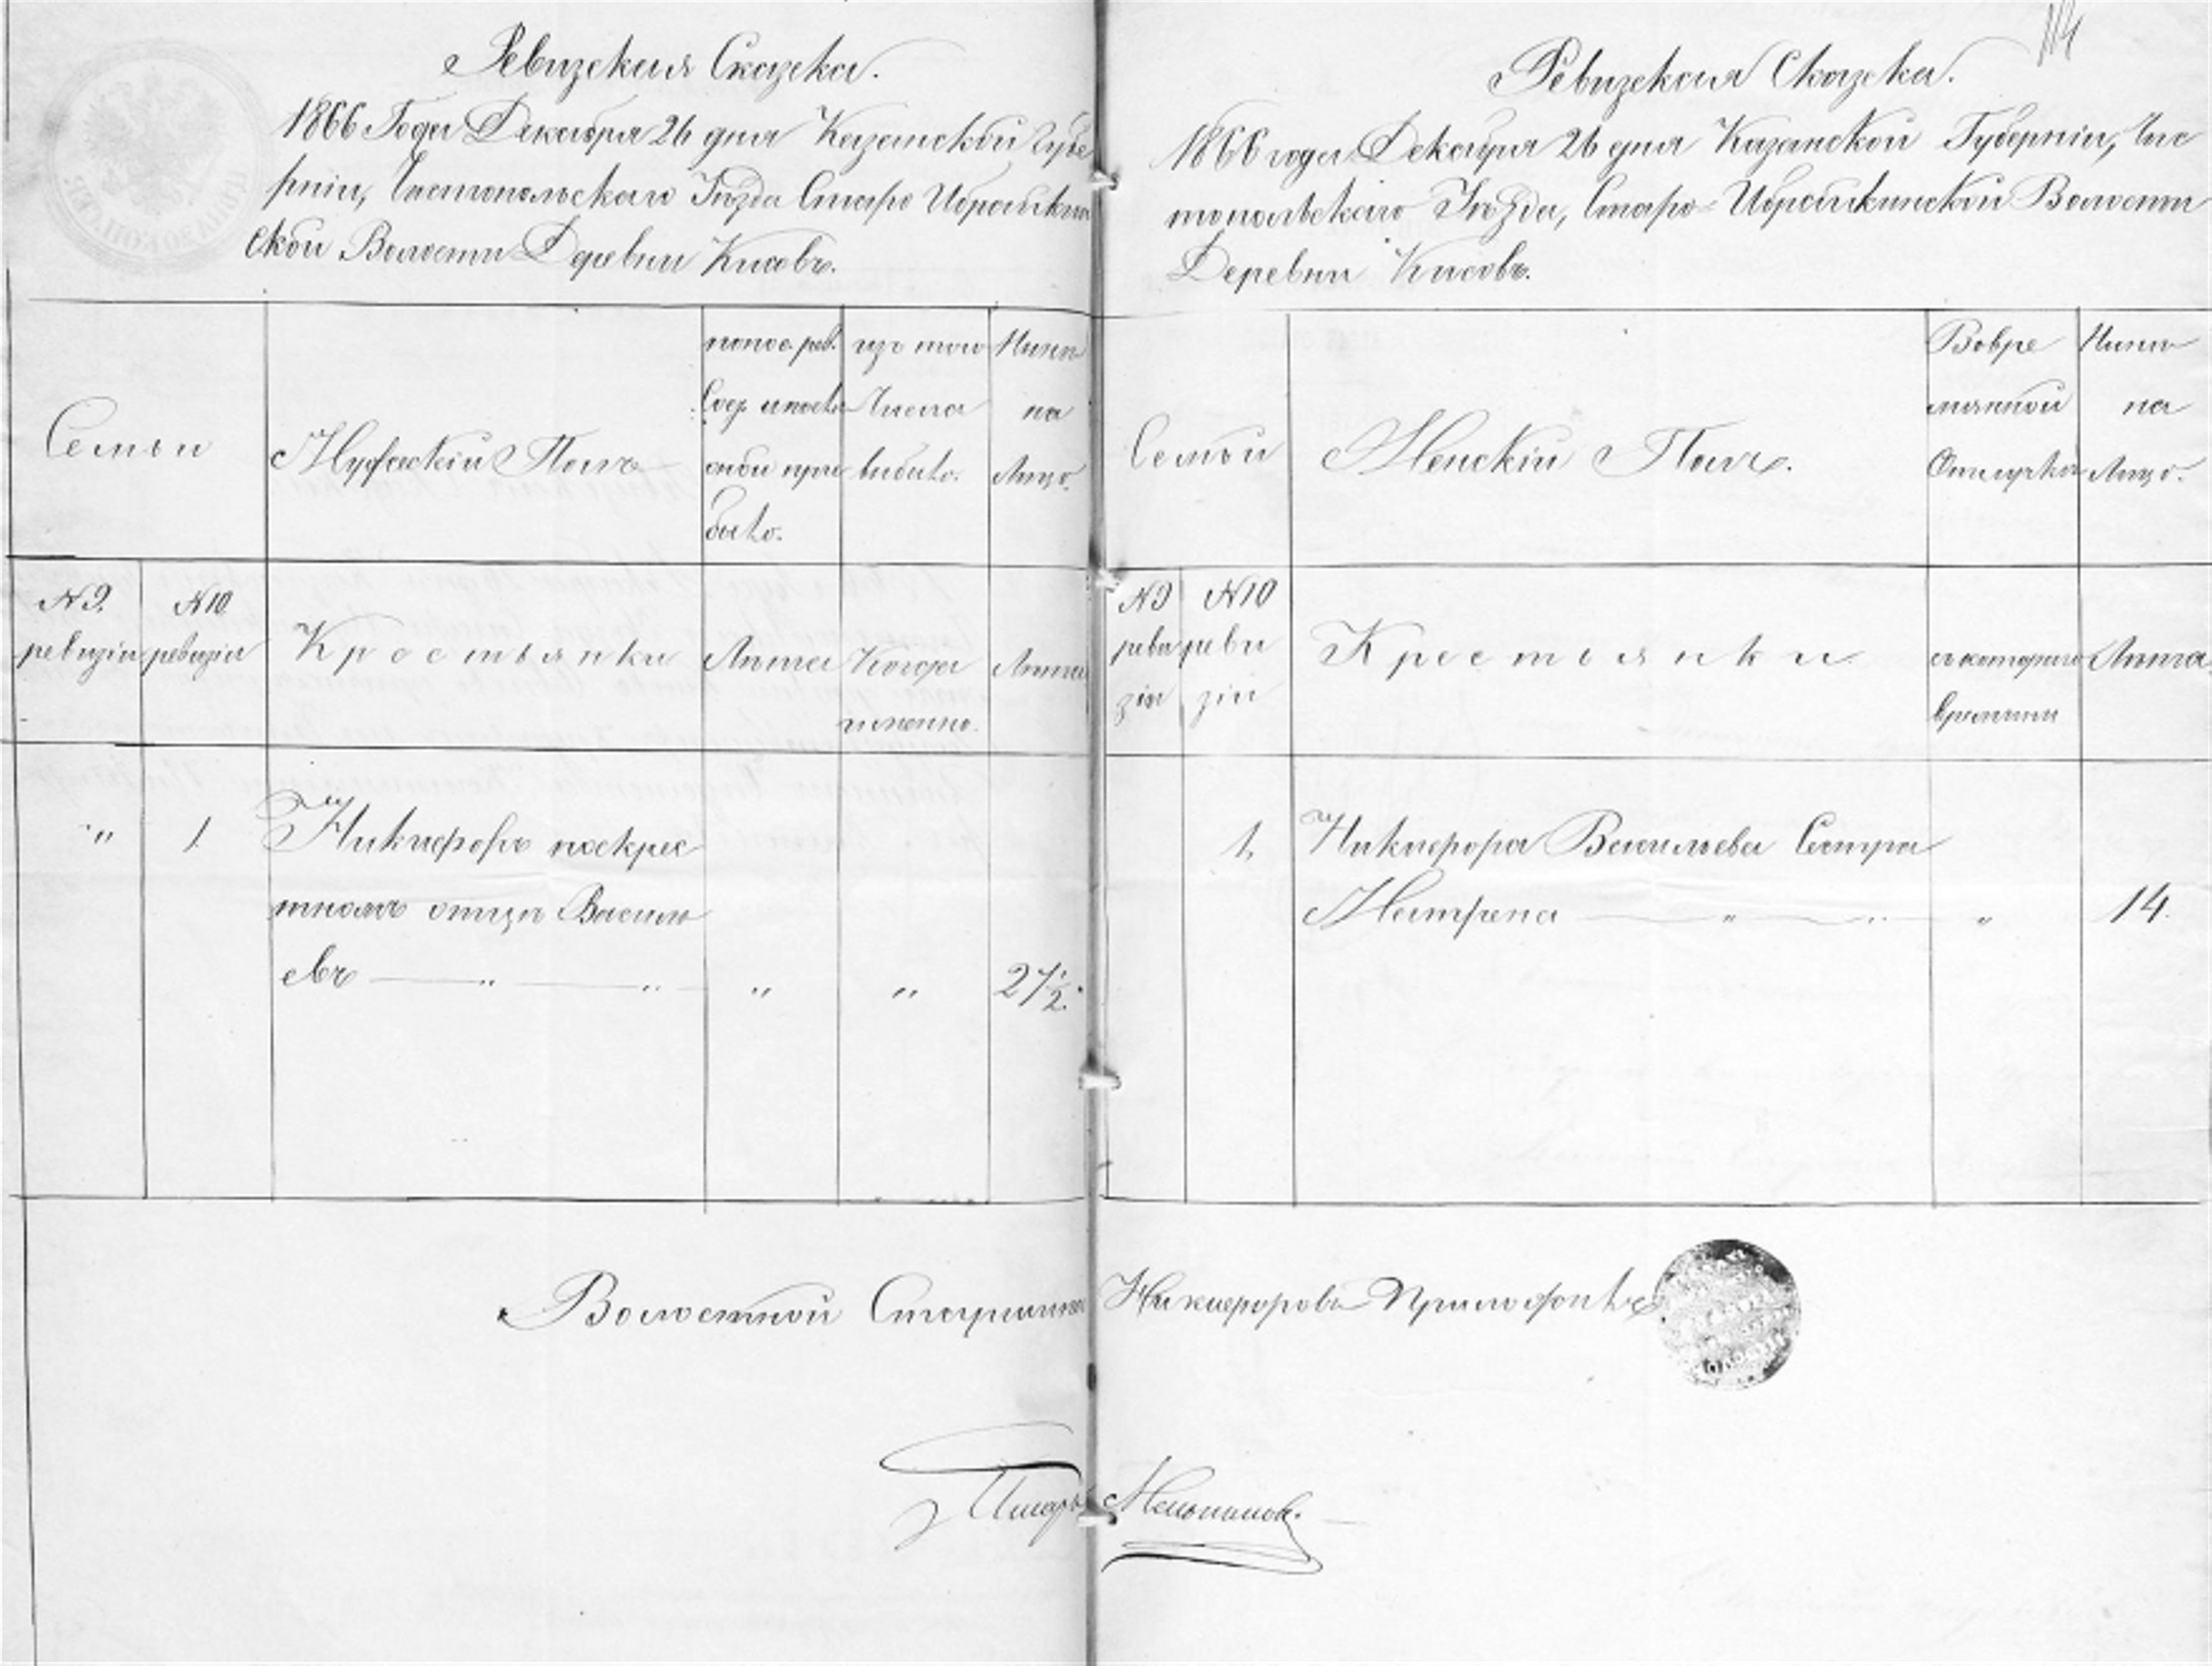 Ревизская Сказка.
1866 Года Декабря 26 дня Казанской Губе
рніи, Чистопольскаго Уѣзда Старо Ибрайкин
ской Волости Деревни Кисовъ.
Семьи
Мужскій Полъ
попос. рев.
прибыло.
изъ того
Числа
выбыло.
Нынѣ
на
Лицо.
№ 9.
ревизіи
№ 10
ревизіи
Крестьянки
Лѣта
Когда
именно.
Лѣта
" 1 Никифоръ покрес
тномъ отцѣ Василь
евъ " " " " 27½.
114
Ревизская Сказка.
1866 года Декабря 26 дня Казанской Губерніи, Чис
топольскаго Уѣзда, Старо-Ибрайкинской Волости
Деревни Кисовъ.
Семьи
Женскій Полъ.
Вовре
мянной
Отлучкѣ
Нынѣ
на
Лицо.
№ 9
реви
зіи
№ 10
реви
зіи
Крестьянки
съ котораго
времени
Лѣта
1. Никифора Васильева Сестра
Матрена " " " 14.
Волостной Старшина Никифоровъ
Писарь